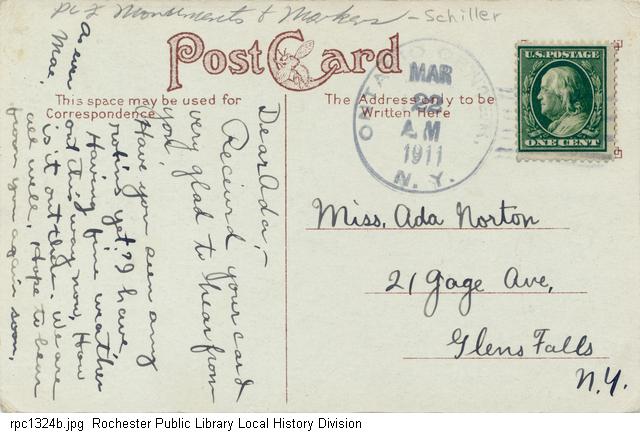 Monuments & Markers - Schiller
Post Card
This space may be used for
Correspondence
The Address only to be
Written Here
U.S. POSTAGE
ONE CENT
ONTARIO CENTER
MAR
22
A M
1911
N. Y.
Dear Ada;-
Recieved your card
very glad to hear from
you.
Have you seen any
robins yet? I have
Having fine weather
out this way now, How
is it out there. We are
all well, Hope to hear
from you again soon,
As ever
Mae.
Miss, Ada Norton
21 Gage Ave,
Glens Falls
N.Y.
rpc1324b.jpg Rochester Public Library Local History Division